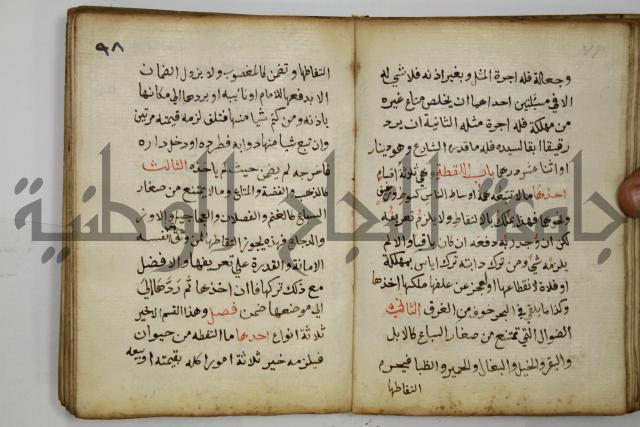 وجعالة فله اجرة المثل وبغير اذنه فلا شي له
الا في مسئلتين احداهما ان يخلص متاع غيره
من مهلكة فله اجرة مثله الثانية ان يرد
رقيقا ابقا لسيده فله ما قدره الشارع وهو دينار
او اثنا عشر درهما باب اللقطة وهي ثلاثة اقسام
احدها ما لا تتبعه همة اوساط الناس كسوط ورغيف
ونحوهما فهذا يملك بالالتقاط ولا يلزم تعريفه
لكن ان وجد ربه دفعه ان كان باقيا والا لم
يلزمه شي ومن ترك دابته ترك اياس بمهلكة
او فلاة لانقطاعها او لعجزه عن علفها ملكها اخذها
وكذا ما يلقي في البحر خوفا من الغرق الثاني
الضوال التي تمتنع من صغار السباع كالابل
والبقر والخيل والبغال والحمير والظبا فيحرم
التقاطها
٩٨
التقاطها وتضمن كالمغصوب ولا يزول الضمان
الا بدفعها للامام او نائبه او بردها الى مكانها
باذنه ومن كتم شيا منها فتلف لزمه قيمته مرتين
وان تبع شيا منها دوابه فطرده او دخل داره
فاخرجه لم يضمن حيث لم ياخذه الثالث
كالذهب والفضة والمتاع وما لا يمتنع من صغار
السباع كالغنم والفصلان والعجاجيل والاوز
والدجاج فهذه يجوز التقاطها لمن وثق نفسه
الامانة والقدرة على تعريفها والافضل
مع ذلك تركها فان اخذها ثم ردها الى
الى موضعها ضمن فصل وهذا القسم الاخير
ثلاثة انواع احدها ما التقطه من حيوان
فيلزمه خير ثلاثة امور اكله بقيمته او بيعه
جامعة النجاح الوطنية